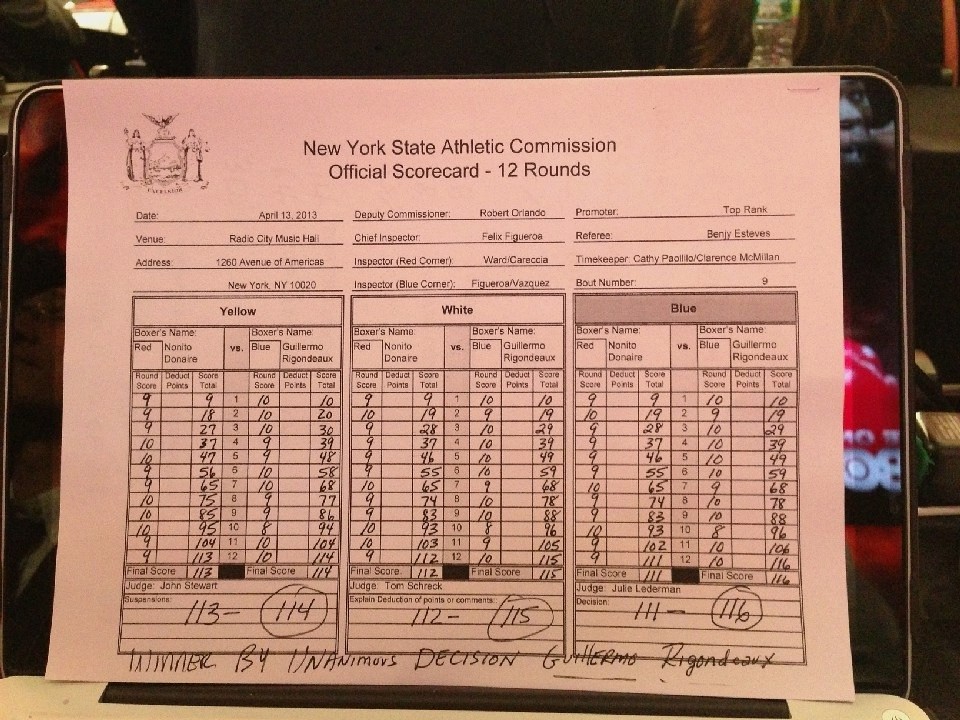 New York State Athletic Commission
Official Scorecard - 12 Rounds
Date: April 13, 2013 Deputy Commissioner: Robert Orlando Promoter: Top Rank
Venue: Radio City Music Hall Chief Inspector: Felix Figueroa Referee: Benjy Esteves
Address: 1260 Avenue of Americas Inspector (Red Corner): Ward/Careccia Timekeeper: Cathy Paolillo/Clarence McMillan
New York, NY 10020 Inspector (Blue Corner): Figueroa/Vazquez Bout Number: 9
Yellow White Blue
Boxer's Name: Boxer's Name: Boxer's Name: Boxer's Name: Boxer's Name: Boxer's Name:
Red Nonito vs. Blue Guillermo Red Nonito vs. Blue Guillermo Red Nonito vs. Blue Guillermo
Donaire Rigondeaux Donaire Rigondeaux Donaire Rigondeaux
Round Deduct Score Round Deduct Score Round Deduct Score Round Deduct Score Round Deduct Score Round Deduct Score
Score Points Total Score Points Total Score Points Total Score Points Total Score Points Total Score Points Total
9 9 1 10 10 9 9 1 10 10 9 9 1 10 10
9 18 2 10 20 10 19 2 9 19 10 19 2 9 19
9 27 3 10 30 9 28 3 10 29 9 28 3 10 29
10 37 4 9 39 9 37 4 10 39 9 37 4 10 39
10 47 5 9 48 9 46 5 10 49 9 46 5 10 49
9 56 6 10 58 9 55 6 10 59 9 55 6 10 59
9 65 7 10 68 10 65 7 9 68 10 65 7 9 68
10 75 8 9 77 9 74 8 10 78 9 74 8 10 78
10 85 9 9 86 9 83 9 10 88 9 83 9 10 88
10 95 10 8 94 10 93 10 8 96 10 93 10 8 96
9 104 11 10 104 10 103 11 9 105 9 102 11 10 106
9 113 12 10 114 9 112 12 10 115 9 111 12 10 116
Final Score 113 Final Score 114 Final Score. 112 Final Score 115 Final Score 111 Final Score 116
Judge: John Stewart Judge: Tom Schreck Judge: Julie Lederman
Suspensions: Explain Deduction of points or comments: Decision:
113- 114 112- 115 111- 116
WINNER BY UNANIMOUS DECISION GUILLERMO Rigondeaux